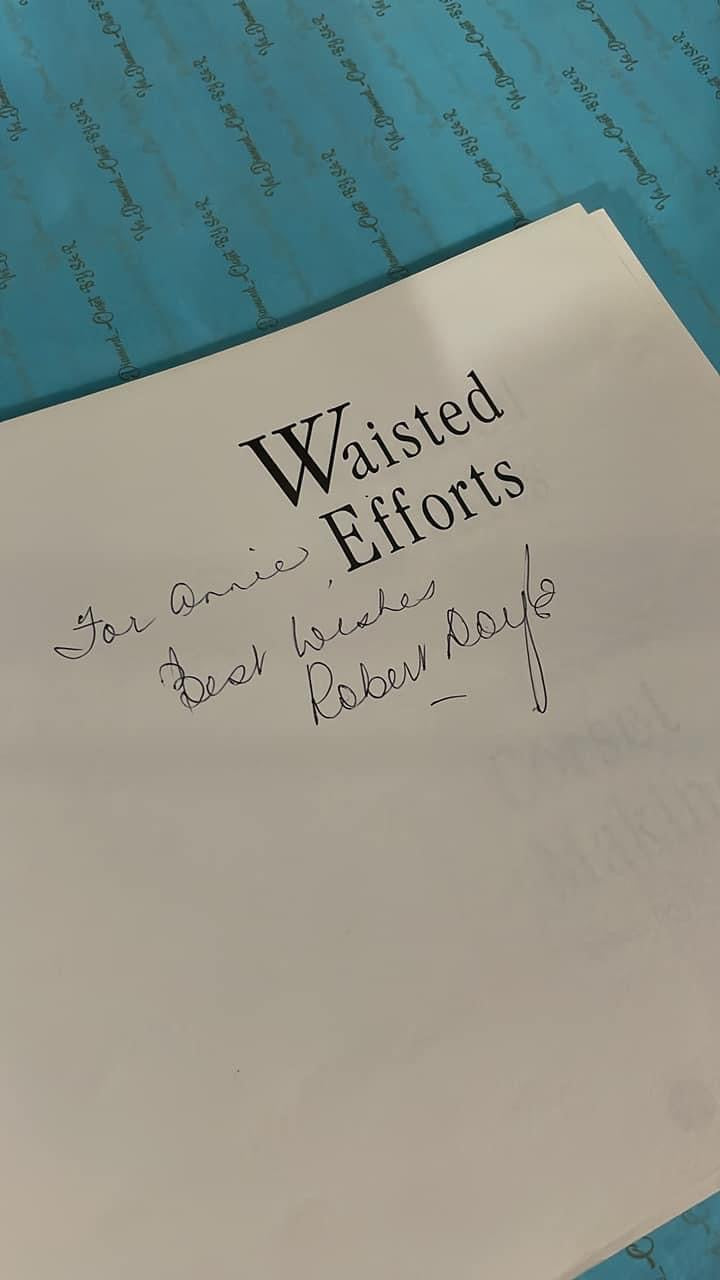 Waisted
Efforts
For Annie,
Best Wishes
Robert Doyle
Corset
Making